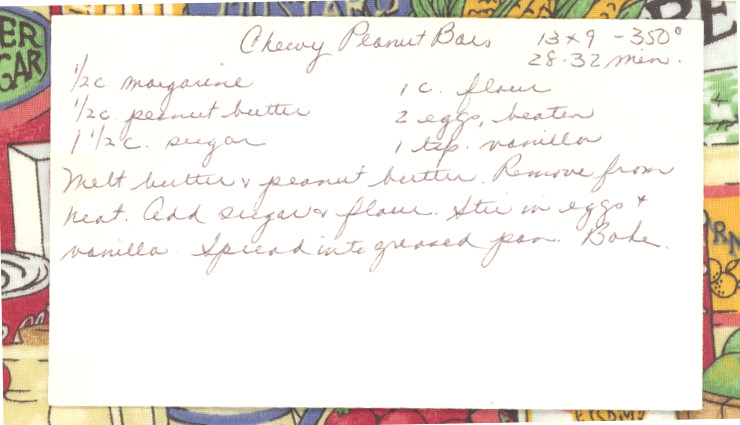 ER
GAR
Chewy Peanut Bars 13 x 9 - 350°
28-32 min.
1/2 c. margarine 1 c. flour
1/2 c. peanut butter 2 eggs, beaten
1 1/2 c. sugar 1 tsp. vanilla
Melt butter & peanut butter. Remove from
heat. Add sugar & flour. Stir in eggs &
vanilla. Spread into greased pan. Bake.